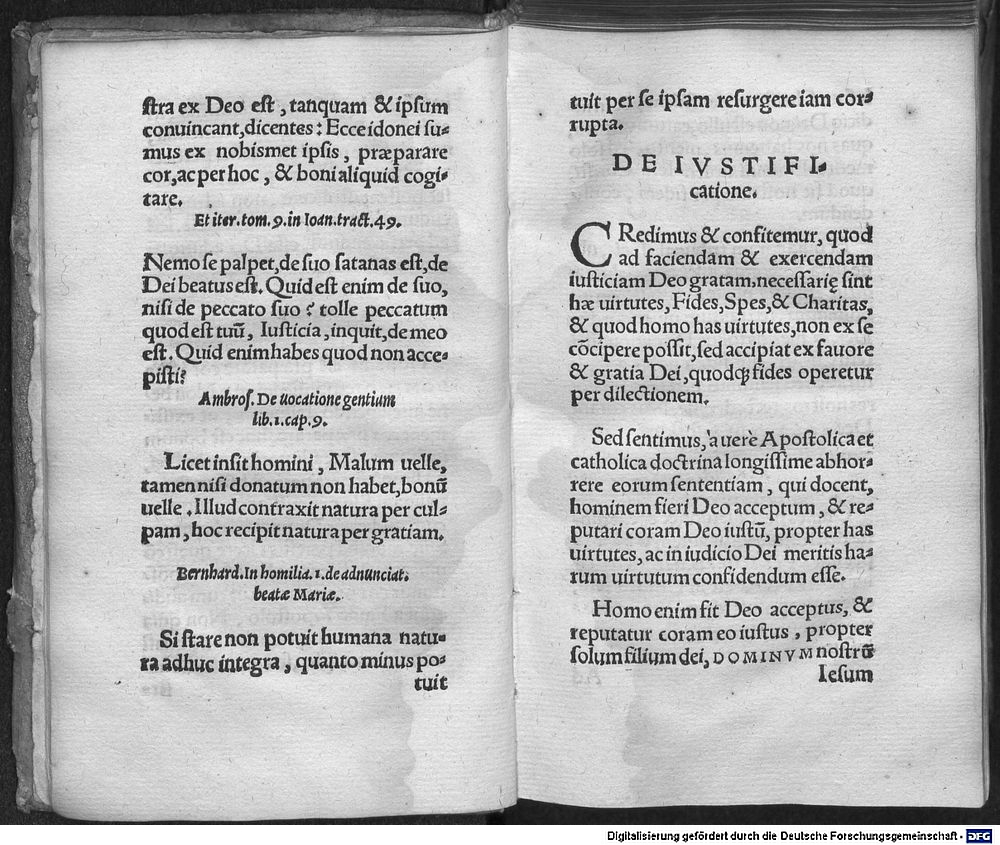 ſtra ex Deo eſt, tanquam & ipſum
conuincant, dicentes: Ecce idonei ſu-
mus ex nobismet ipſis, præparare
cor, ac per hoc, & boni aliquid cogi-
tare.
Et iter. tom. 9. in Ioan. tract. 49.
Nemo ſe palpet, de ſuo ſatanas eſt, de
Dei beatus est. Quid est enim de ſuo,
niſi de peccato ſuo? tolle peccatum
quod est tuū, Iusticia, inquit, de meo
eſt. Quid enim habes quod non acce-
piſti?
Ambroſ. De uocatione gentium
lib. 1. cap. 9.
Licet inſit homini, Malum uelle,
tamen niſi donatum non habet, bonū
uelle. Illud contraxit natura per cul-
pam, hoc recipit natura per gratiam.
Bernhard. In homilia. 1. de adnunciat.
beatæ Mariæ.
Si ſtare non potuit humana natu-
ra adhuc integra, quanto minus po-
tuit
tuit per ſe ipſam reſurgere iam cor-
rupta.
DE IVSTIFI-
catione.
CRedimus & confitemur, quod
ad faciendam & exercendam
iuſticiam Deo gratam, neceſſarię ſint
hæ uirtutes, Fides, Spes, & Charitas,
& quod homo has uirtutes, non ex ſe
cōcipere poſſit, ſed accipiat ex fauore
& gratia Dei, quodꝙ fides operetur
per dilectionem.
Sed ſentimus, à uerè Apoſtolica et
catholica doctrina longiſſime abhor-
rere eorum ſententiam, qui docent,
hominem fieri Deo acceptum, & re-
putari coram Deo iuſtū, propter has
uirtutes, ac in iudicio Dei meritis ha-
rum uirtutum confidendum eſſe.
Homo enim fit Deo acceptus, &
reputatur coram eo iuſtus, propter
ſolum filium dei, DOMINVM noſtrū
Ieſum
Digitalisierung gefördert durch die Deutsche Forschungsgemeinschaft - DFG